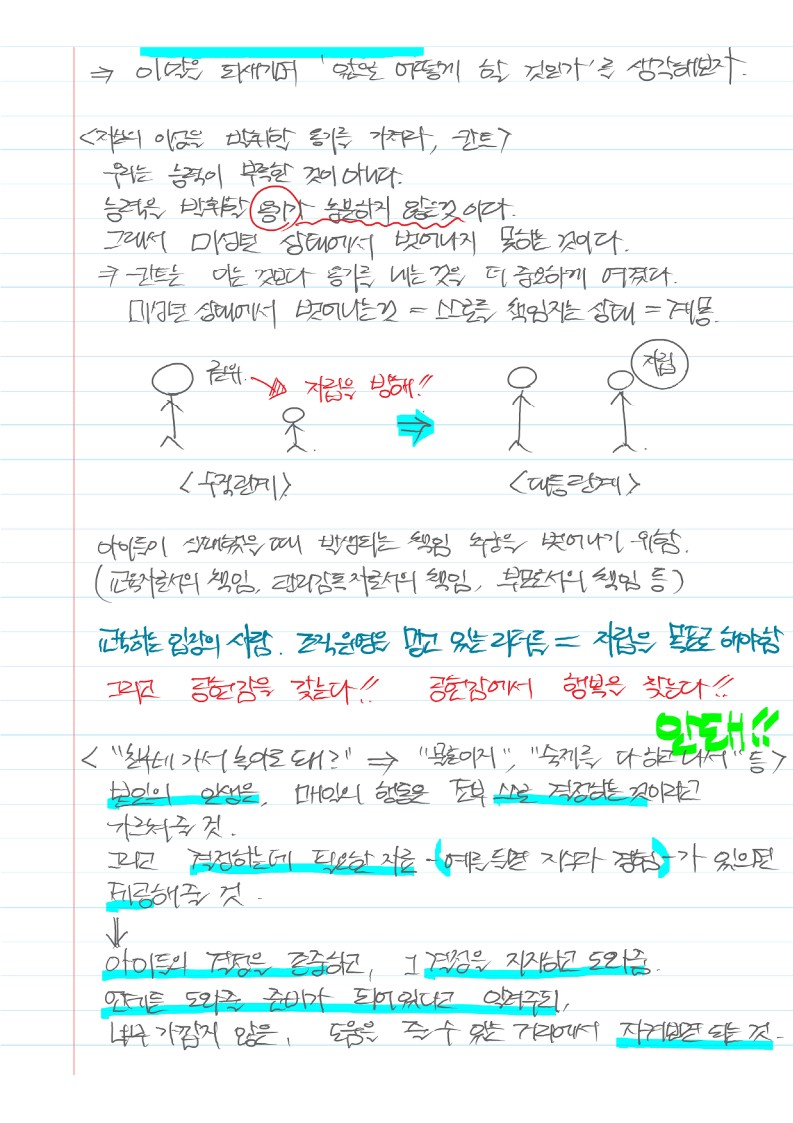 ⇒ 이 말을 되새기며 '앞으로 어떻게 할 것인가'를 생각해보자.
<자신의 이성을 발휘할 용기를 가져라, 칸트>
우리는 능력이 부족한 것이 아니다.
능력을 발휘할 용기가 충분하지 않은 것이다.
그래서 미성년 상태에서 벗어나지 못하는 것이다.
⇒ 칸트는 아는 것보다 용기를 내는 것을 더 중요하게 여겼다.
미성년 상태에서 벗어나는 것 = 스스로를 책임지는 상태 = 계몽.
권위. 자립을 방해!! ⇒ 자립
<수직관계> <대등관계>
아이들이 실패했을 때 발생되는 책임 추궁을 벗어나기 위함.
(교육자로서의 책임, 관리감독자로서의 책임, 부모로서의 책임 등)
교육하는 입장의 사람. 조직운영을 맡고 있는 리더들 = 자립을 목표로 해야함
그리고 공헌감을 갖는다!! 공헌감에서 행복을 찾는다!!
안돼!!
< "친구네 가서 놀아도 돼?" ⇒ "물론이지", "숙제를 다 하고 나서" 등>
본인의 인생은, 매일의 행동은 전부 스스로 결정하는 것이라고
가르쳐줄 것.
그리고 결정하는데 필요한 자료 -(예를 들면 지식과 경험)- 가 있으면
제공해줄 것.
↓
아이들의 결정을 존중하고, 그 결정을 지지하고 도와줌.
언제든 도와줄 준비가 되어있다고 알려주되,
너무 가깝지 않은, 도움을 줄 수 있는 거리에서 지켜보면 되는 것.